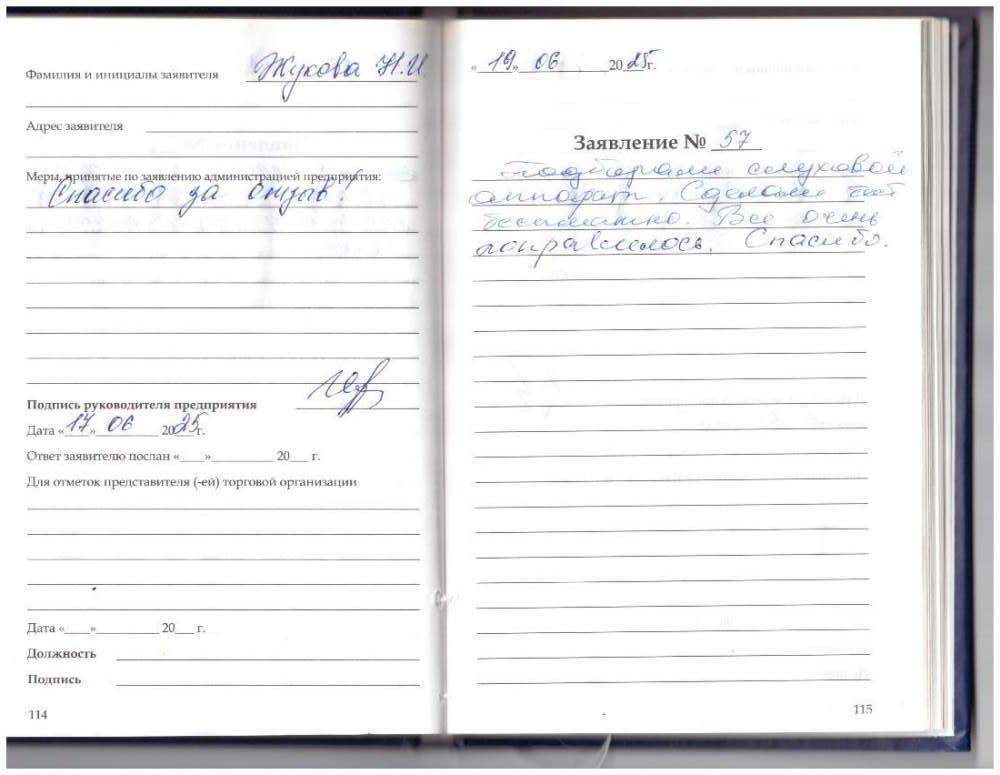 Фамилия и инициалы заявителя Жукова Н.И.
Адрес заявителя
Меры, принятые по заявлению администрацией предприятия:
Спасибо за отзыв!
Подпись руководителя предприятия
Дата «17» 06 2025 г.
Ответ заявителю послан «____»__________ 20___ г.
Для отметок представителя (-ей) торговой организации
Дата «____»__________ 20___ г.
Должность
Подпись
114
«19» 06 2025 г.
Заявление № 57
Подбирали слуховой
аппарат. Сделали тест
бесплатно. Все очень
понравилось. Спасибо.
115